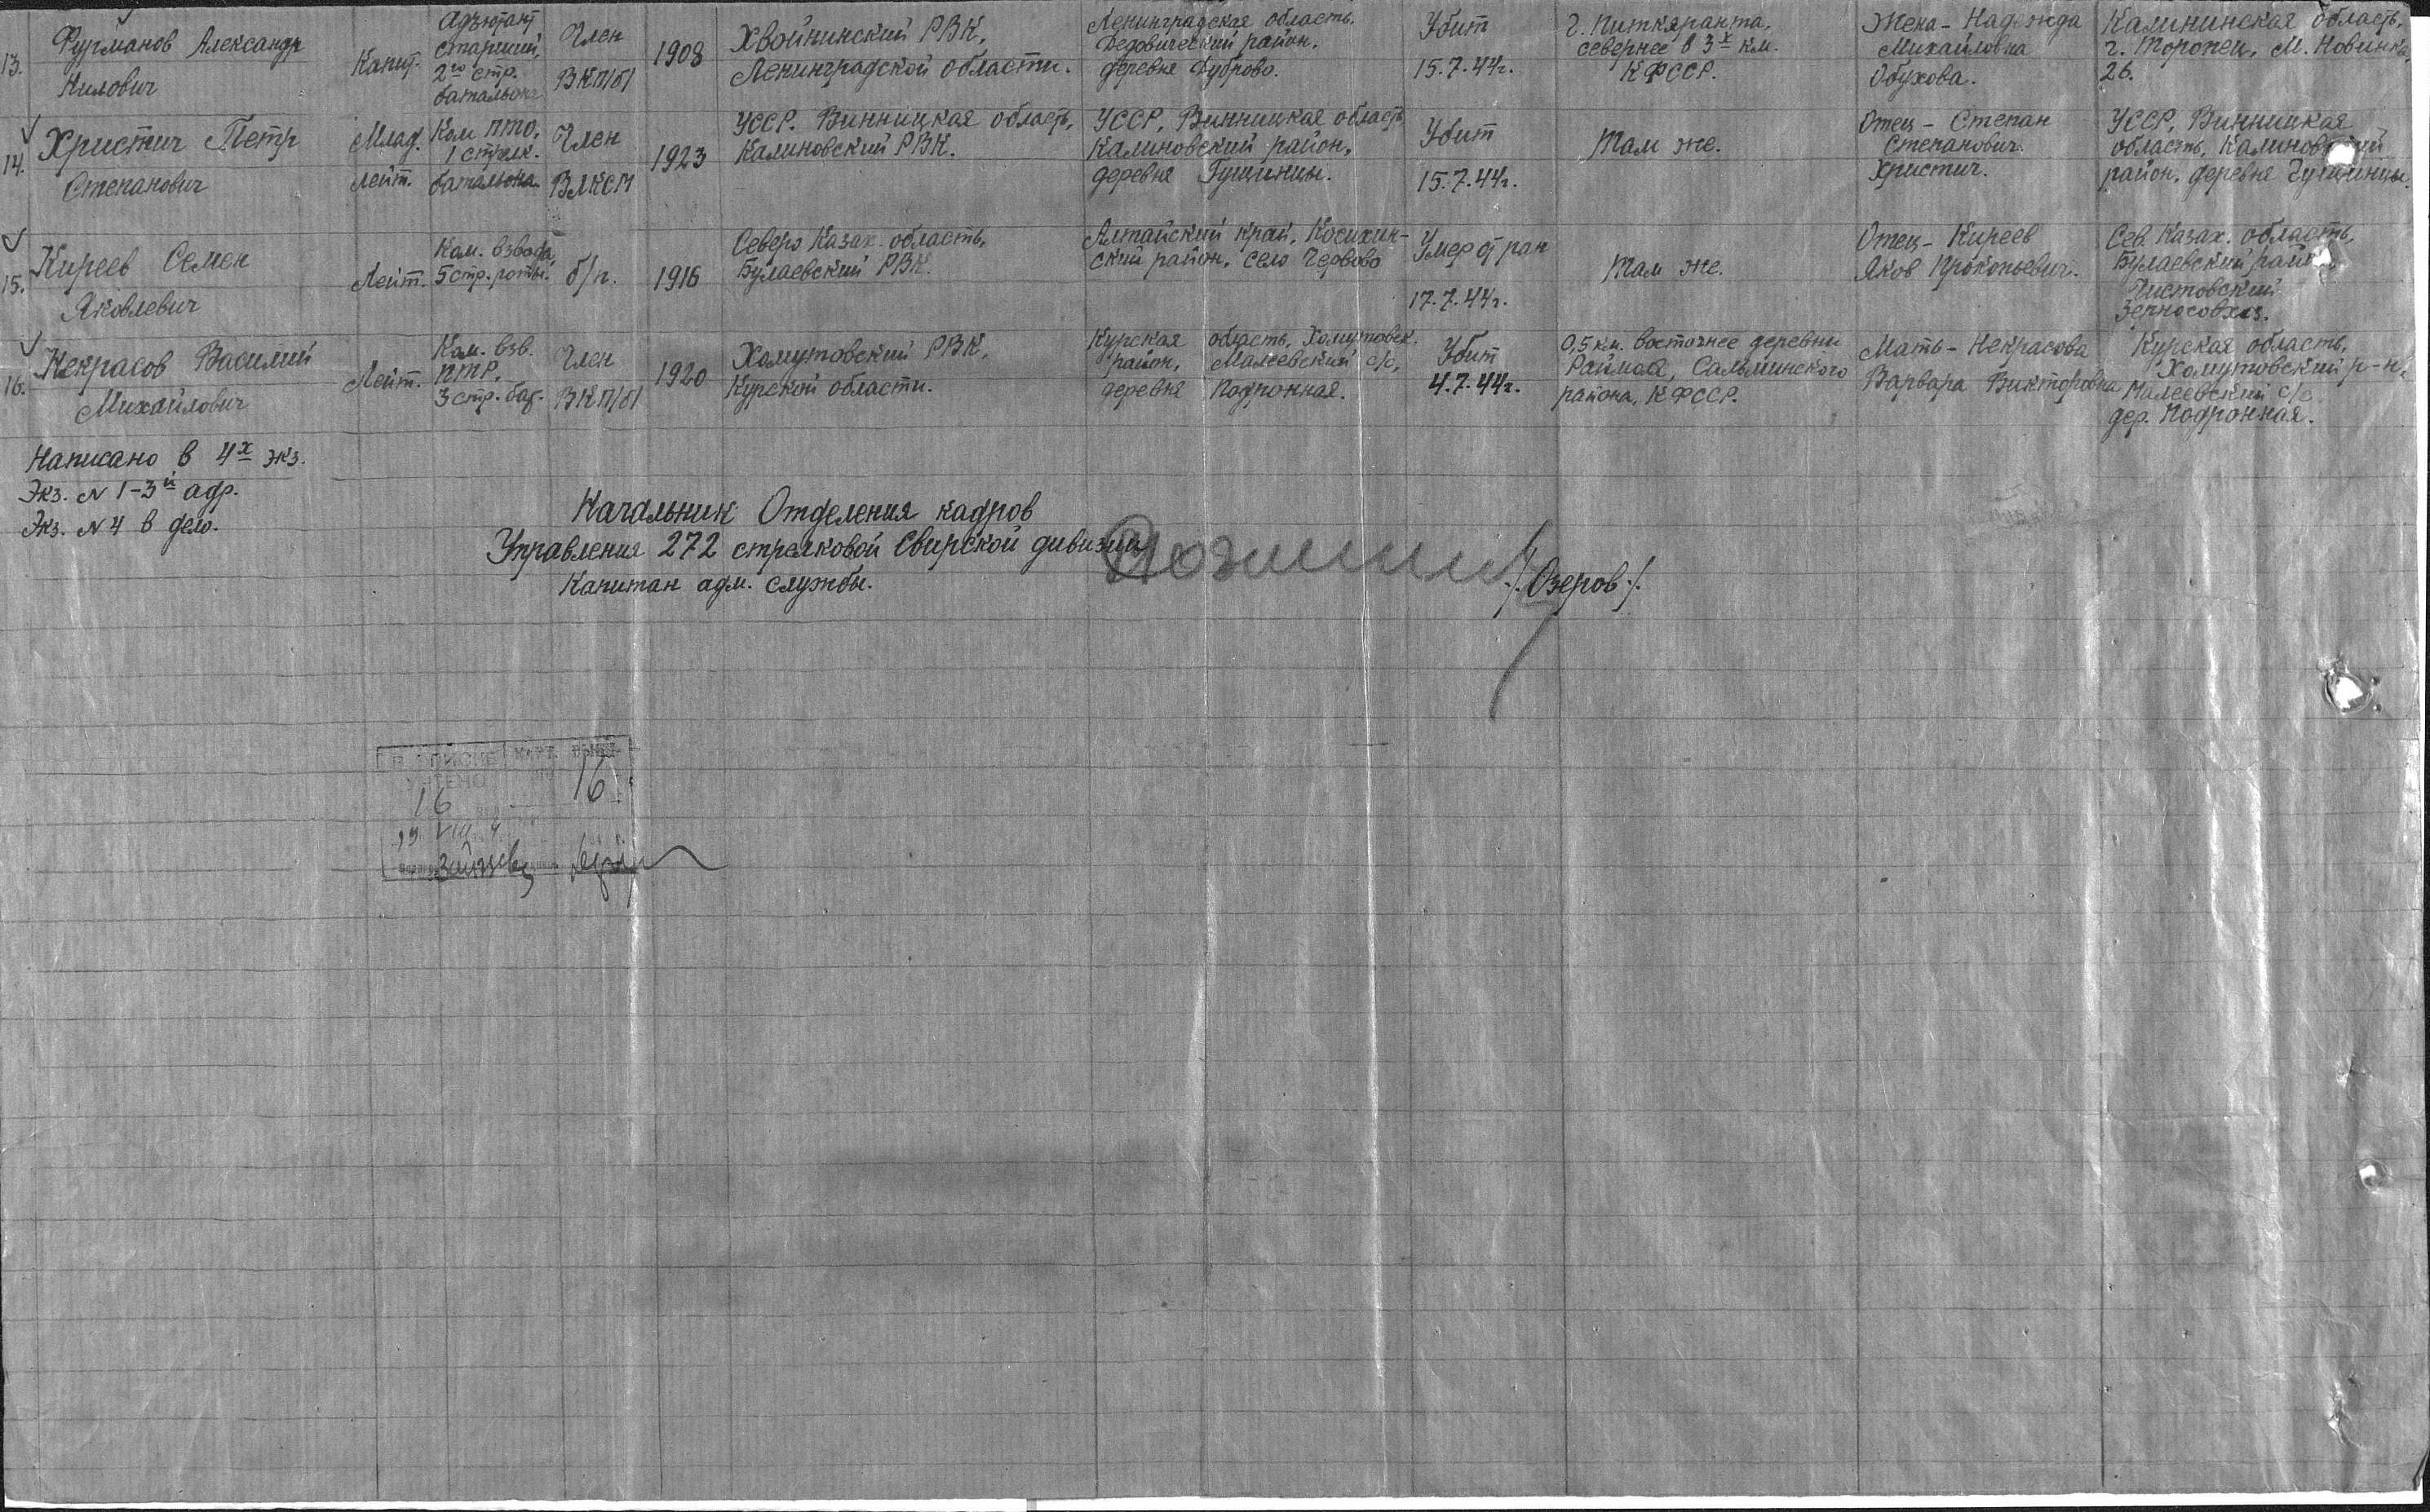 13.
Фурманов Александр
Нилович
Капит.
Адъютант
старший,
2го стр.
батальона
Член
ВКП/б/
1908
Хвойнинский РВК,
Ленинградской области.
Ленинградская область.
Дедовический район,
деревня Дуброво.
Убит
15.7.44г.
г. Питкяранта,
севернее в 3х км.
КФССР.
Жена - Надежда
Михайловна
Обухова.
Калининская область,
г. Торопец, М. Новинка,
26.
14.
Христич Петр
Степанович
Млад.
лейт.
Ком ПТО,
1 стрелк.
батальона.
Член
ВЛКСМ
1923
УССР. Винницкая область,
Калиновский РВК.
УССР, Винницкая область
Калиновский район,
деревня Гущинцы.
Убит
15.7.44г.
Там же.
Отец - Степан
Степанович
Христич.
УССР, Винницкая
область, Калиновский
район, деревня Гущинцы.
15.
Киреев Семен
Яковлевич
Лейт.
Ком. взвода,
5 стр. роты.
б/п.
1916
Северо Казах. область,
Булаевский РВК.
Алтайский край, Косихин-
ский район, село Червово
Умер от ран
17.7.44г.
Там же.
Отец - Киреев
Яков Прокопьевич.
Сев. Казах. область,
Булаевский район,
Чистовский
Зерносовхоз.
16.
Некрасов Василий
Михайлович
Лейт.
Ком. взв.
ПТР,
3 стр. бат.
Член
ВКП/б/
1920
Хомутовский РВК,
Курской области.
Курская область, Хомутовск.
район, Малеевский с/с,
деревня Подронная.
Убит
4.7.44г.
0,5 км. восточнее деревни
Раймоля, Сальминского
района, КФССР.
Мать - Некрасова
Варвара Викторовна
Курская область,
Хомутовский р-н,
Малеевский с/с
дер. Подронная.
Написано в 4х экз.
Экз. N 1-3й адр.
Экз. N 4 в дело.
Начальник Отделения кадров
Управления 272 стрелковой Свирской дивизии
Капитан адм. службы.
/.Озеров./.
УЧТЕНО
16
16